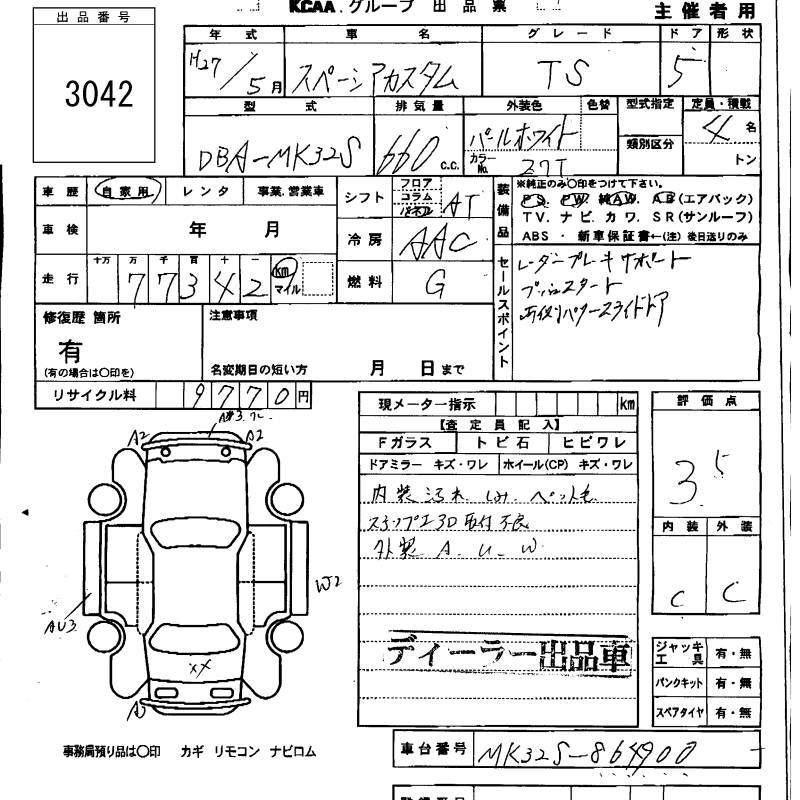 KCAA. グループ 出品票
主催者用
出品番号
3042
年式 車名 グレード ドア 形状
H27/5月 スペーシアカスタム TS 5
型式 排気量 外装色 色替 型式指定 定員・積載
DBA-MK32S 660 c.c. パールホワイト 類別区分 4名
カラーNo. Z7T トン
車歴 自家用 レンタ 事業.営業車
シフト フロア コラム インパネ AT
車検 年 月
冷房 AAC
走行 十万 万 千 百 十 一 km マイル
77342
燃料 G
装備品
※純正のみ〇印をつけて下さい。
PS. PW. 純AW. AB(エアバック)
TV. ナビ. カワ. SR(サンルーフ)
ABS ・ 新車保証書←(注) 後日送りのみ
セールスポイント
レーダーブレーキサポート
プッシュスタート
両側パワースライドドア
修復歴 箇所
有
(有の場合は〇印を)
注意事項
名変期日の短い方 月 日まで
リサイクル料 9770円
現メーター指示 km
【査定員記入】
Fガラス トビ石 ヒビワレ
ドアミラー キズ・ワレ ホイール(CP) キズ・ワレ
内装 汚れ しみ ペット毛
取付不良
外装 A. U. W
ディーラー出品車
評価点
3.5
内装 外装
C C
ジャッキ工具 有・無
パンクキット 有・無
スペアタイヤ 有・無
A2
A2
W2
AU3
XX
事務局預り品は〇印 カギ リモコン ナビロム
車台番号 MK32S-864900